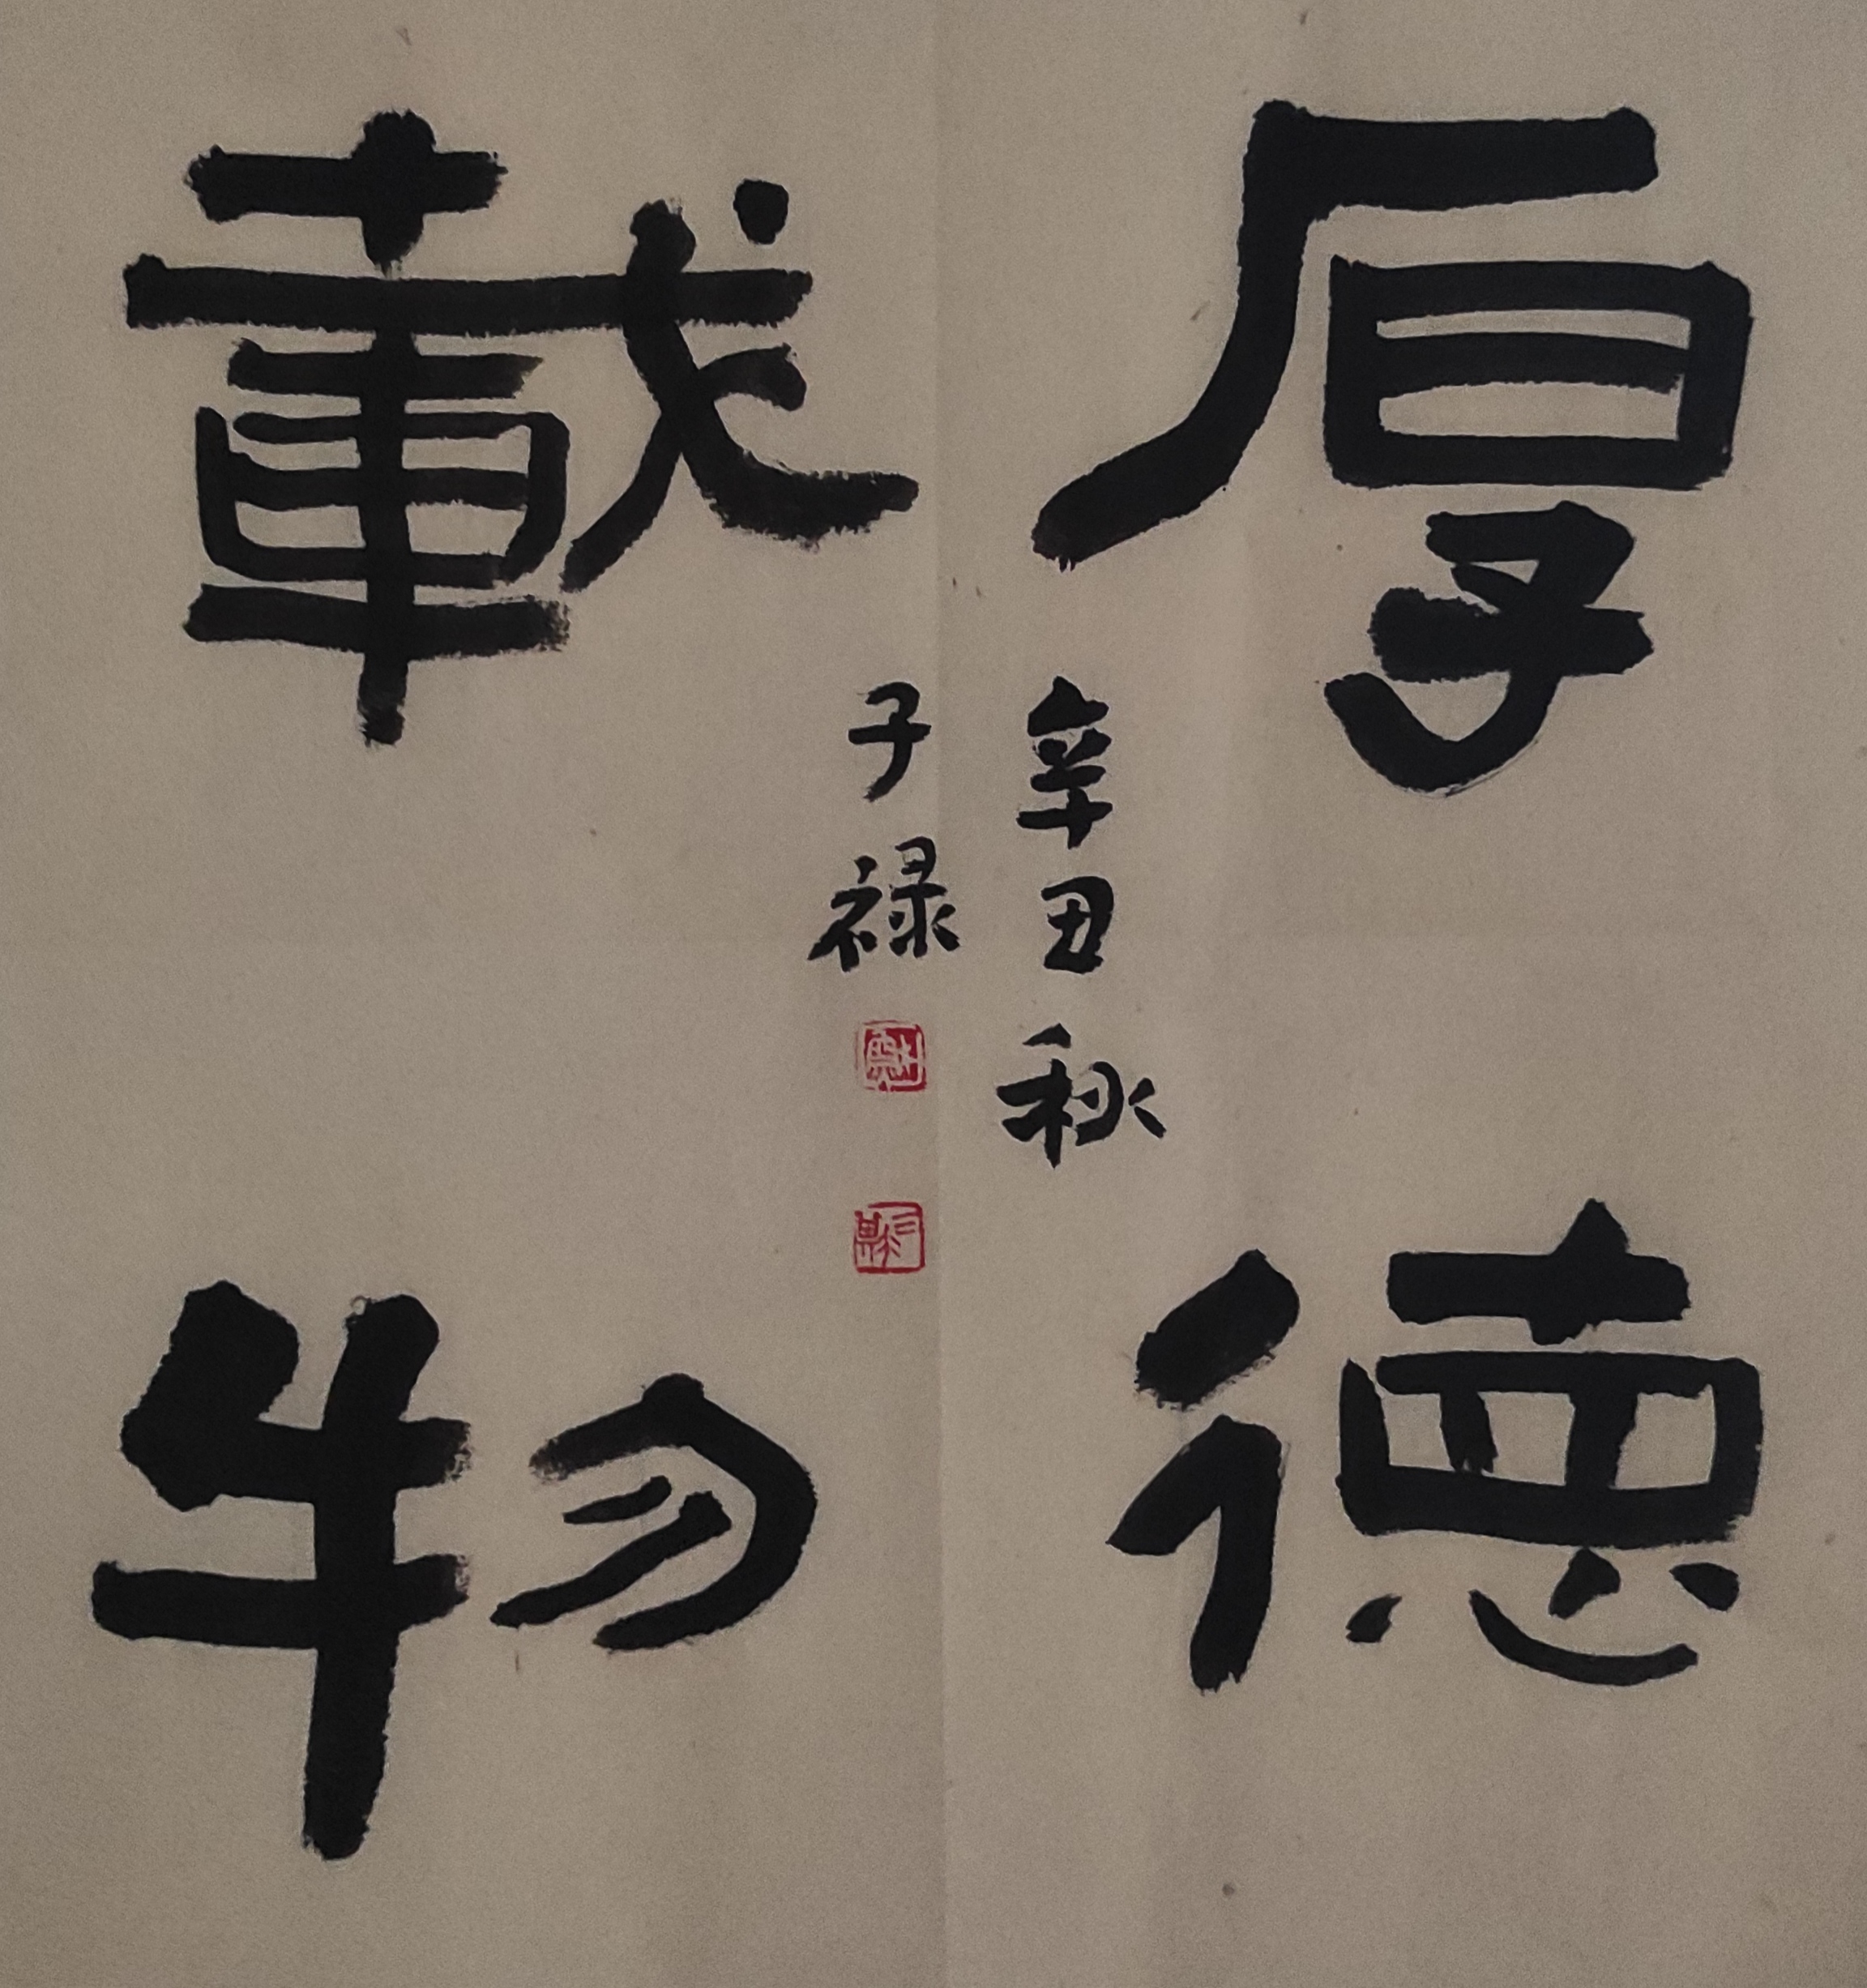 厚德
載物
辛丑秋
子禄